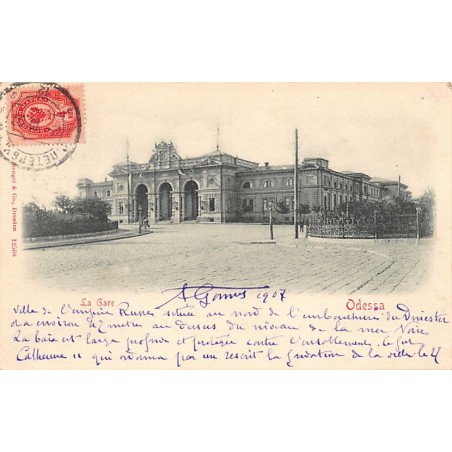 Stengel & Co., Dresden 12568
La Gare
A Gomes 1907
Odessa
Ville de l'empire Russe située au nord de l'embouchure du Dniester
a environ 42 metres au dessus du niveau de la mer Noire
La baie est large profonde et protegée contre l'ensablement. le
Catherine II qui ordonna par un rescrit la fondation de la ville le 27